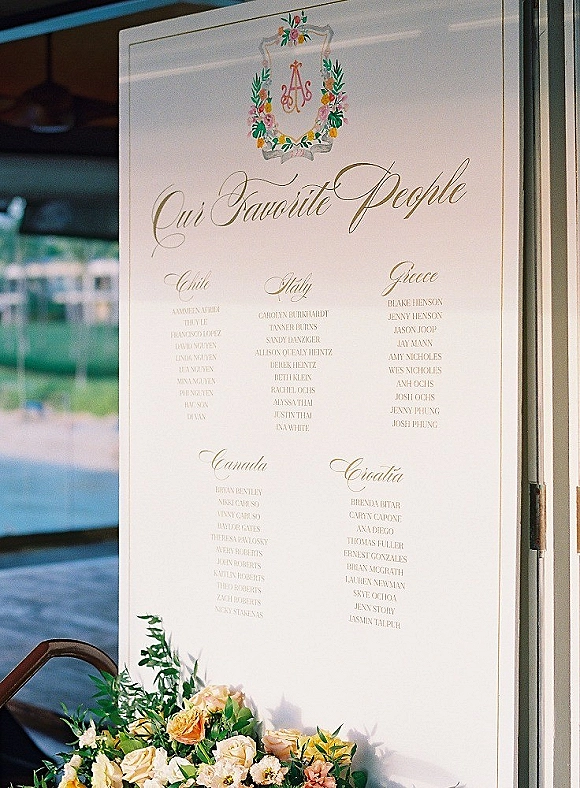 A
Our Favorite People
Chile
KAMMEEN AFRIDI
THUY LE
FRANCISCO LOPEZ
DAVID NGUYEN
LINDA NGUYEN
LUA NGUYEN
MINA NGUYEN
PHI NGUYEN
BAC SON
DI VAN
Italy
CAROLYN BURKHARDT
TANNER BURNS
SANDY DANZIGER
ALLISON QUEALY HEINTZ
DEREK HEINTZ
BETH KLEIN
RACHEL OCHS
MYSSA THAI
JUSTIN THAI
INA WHITE
Greece
BLAKE HENSON
JENNY HENSON
JASON JOOP
JAY MANN
AMY NICHOLES
WES NICHOLES
ANH OCHS
JOSH OCHS
JENNY PHUNG
JOSH PHUNG
Canada
BRYAN BENTLEY
NIKKI CARUSO
VINNY CARUSO
BAYLOR GATES
THERESA PAVLOSKY
AVERY ROBERTS
JOHN ROBERTS
KAITLIN ROBERTS
THEO ROBERTS
ZACH ROBERTS
NICKY STAKENAS
Croatia
BRENDA BITAR
CARYN CAPONE
ANA DIEGO
THOMAS FULLER
ERNEST GONZALES
BRIAN MCGRATH
LAUREN NEWMAN
SKYE OCHOA
JENN STORY
JASMIN TALPUR